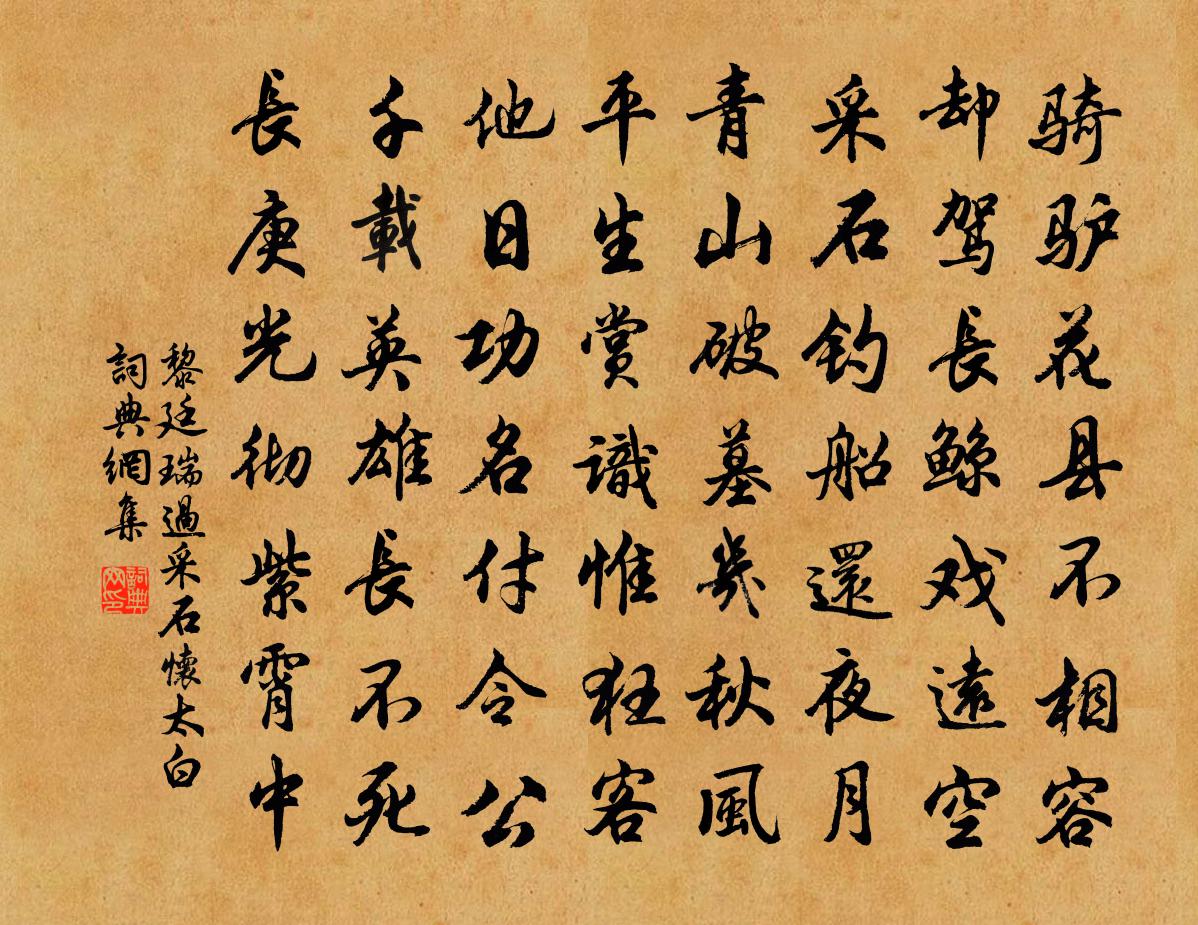 骑驴花县不相容
却驾長鲸戏遠空
采石钓船還夜月
青山破墓幾秋風
平生賞識惟狂客
他日功名付令公
千載英雄長不死
長庚光彻紫霄中
黎廷瑞過采石懷太白
詞典網集
詞典网印